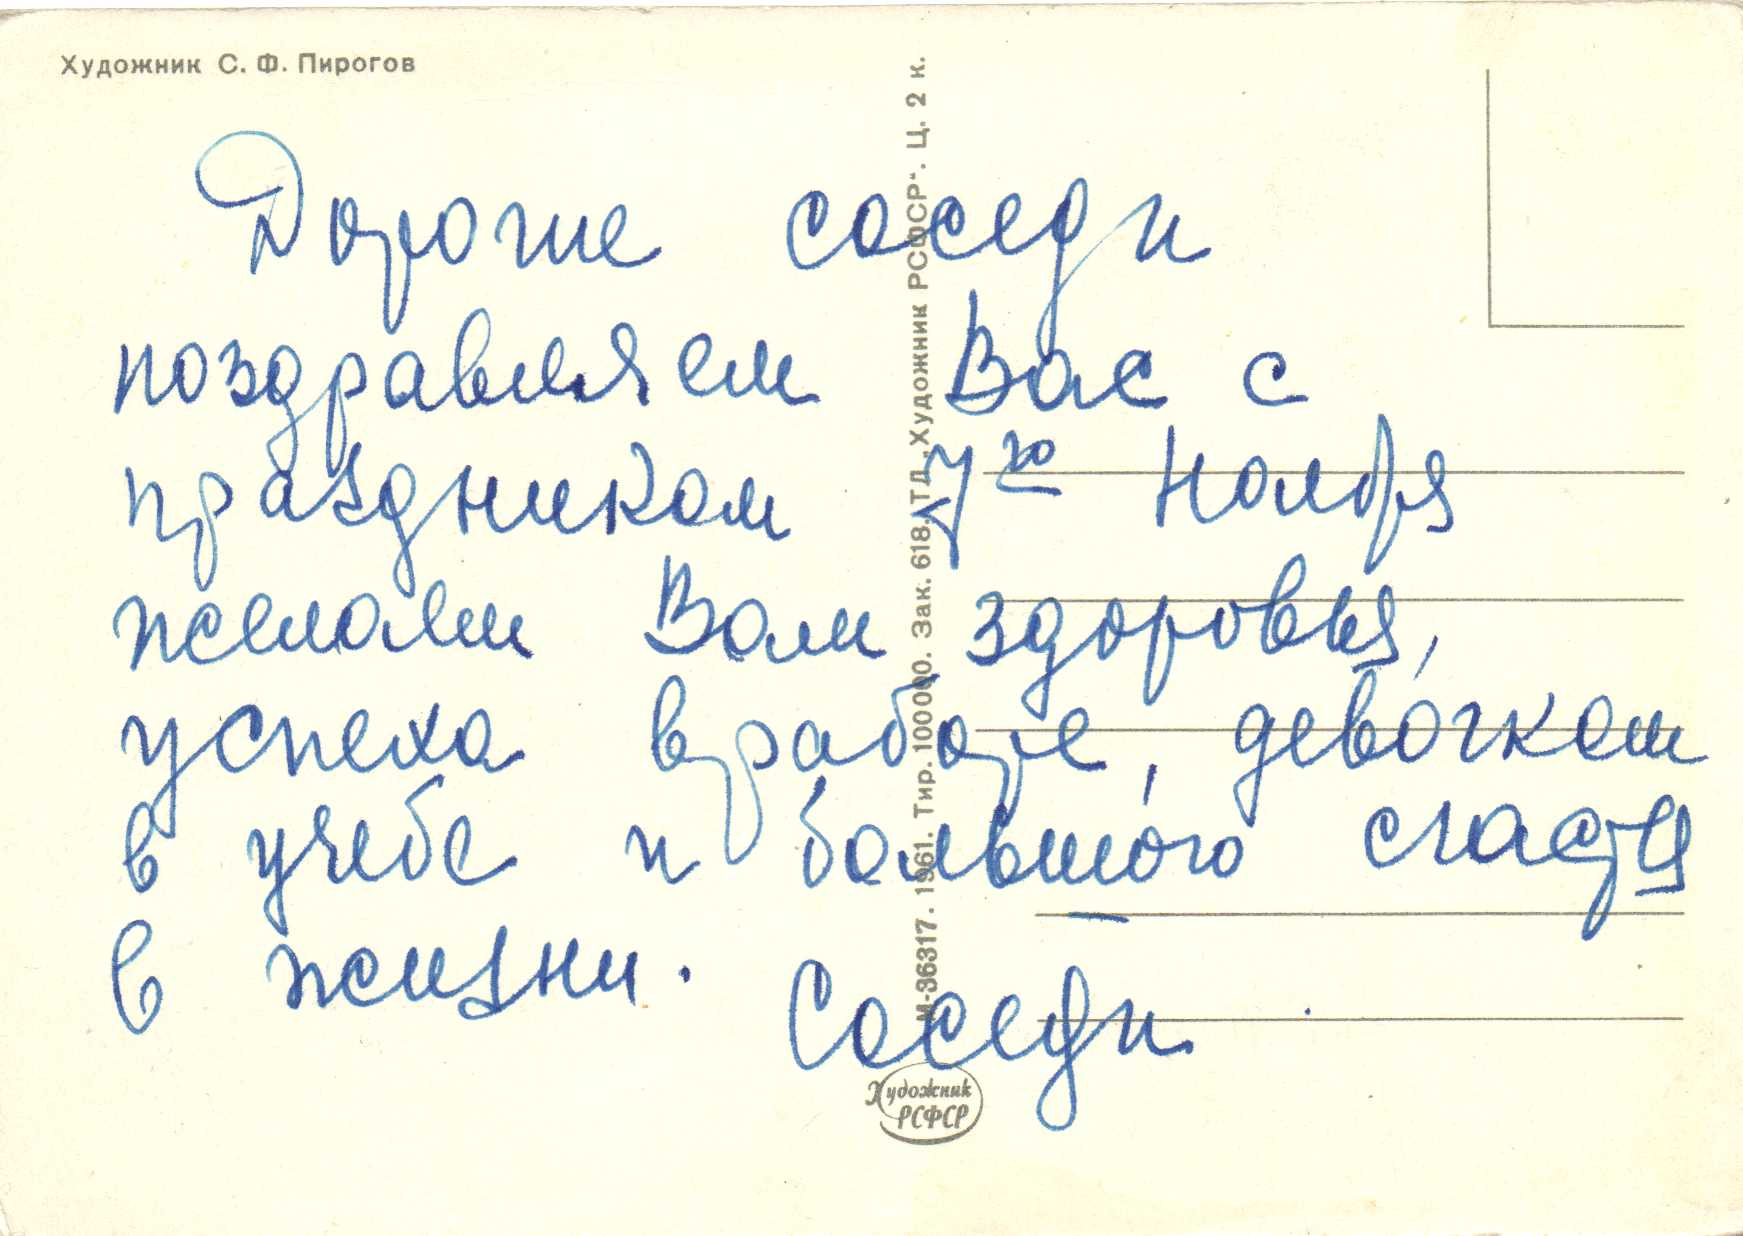 Художник С. Ф. Пирогов
Дорогие соседи
поздравляем Вас с
праздником 7го Ноября
желаем Вам здоровья,
успеха в работе, девочкам
в учебе и большого счастья
в жизни.
Соседи
М-36317. 1961. Тир. 100000. Зак. 618. ТД „Художник РСФСР“. Ц. 2 к.
Художник
РСФСР